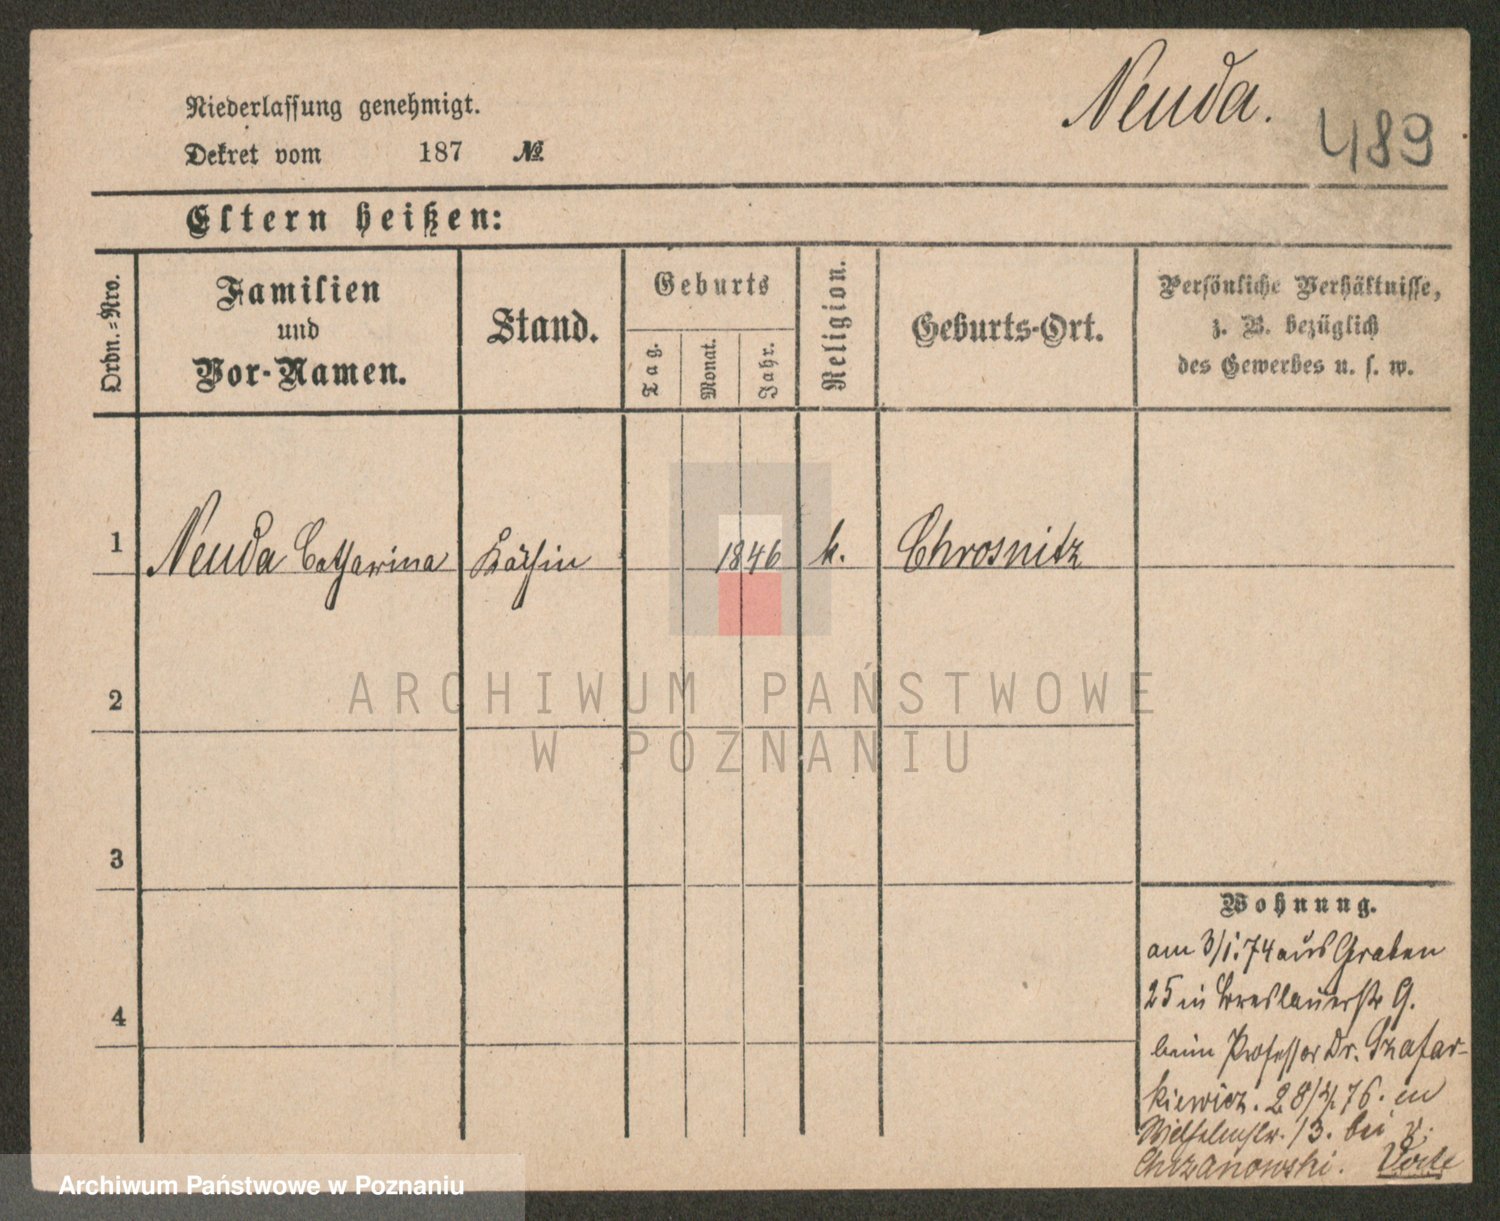 Neuda.
489
Niederlassung genehmigt.
Dekret vom 187 №
Eltern heißen:
Ordn.=Nro.
Familien
und
Vor-Namen.
Stand.
Geburts
Tag.
Monat.
Jahr.
Religion.
Geburts-Ort.
Persönliche Verhältnisse,
z. B. bezüglich
des Gewerbes u. s. w.
1 Neuda Catharina Köchin 1846 k. Chrosnitz
2
3
4
Wohnung.
am 3/1.74 aus Graben
25 in Breslauerstr 9.
beim Professor Dr. Szafar-
kiewicz. 28/ 76. in
Wilhelmstr. 13. bei v.
Chrzanowski.
ARCHIWUM PAŃSTWOWE
W POZNANIU
Archiwum Państwowe w Poznaniu